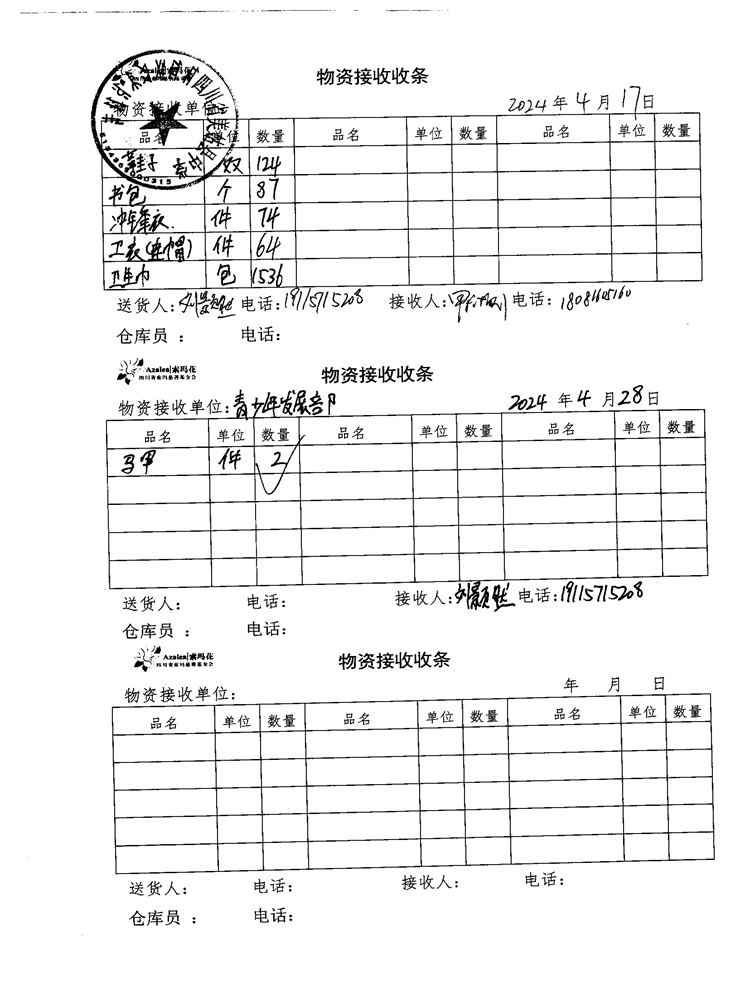 物资接收收条
物资接收单位 2024年4月17日
品名 单位 数量 品名 单位 数量 品名 单位 数量
鞋子 双 124
书包 个 87
冲锋衣 件 74
卫衣(连帽) 件 64
卫生巾 包 1536
送货人: 电话:19115715208 接收人: 电话:
仓库员: 电话:
Azalea|索玛花
四川省索玛慈善基金会
物资接收收条
物资接收单位:青少年发展部 2024年4月28日
品名 单位 数量 品名 单位 数量 品名 单位 数量
马甲 件 2
送货人: 电话: 接收人: 电话:19115715208
仓库员: 电话:
Azalea|索玛花
四川省索玛慈善基金会
物资接收收条
物资接收单位: 年 月 日
品名 单位 数量 品名 单位 数量 品名 单位 数量
送货人: 电话: 接收人: 电话:
仓库员: 电话: